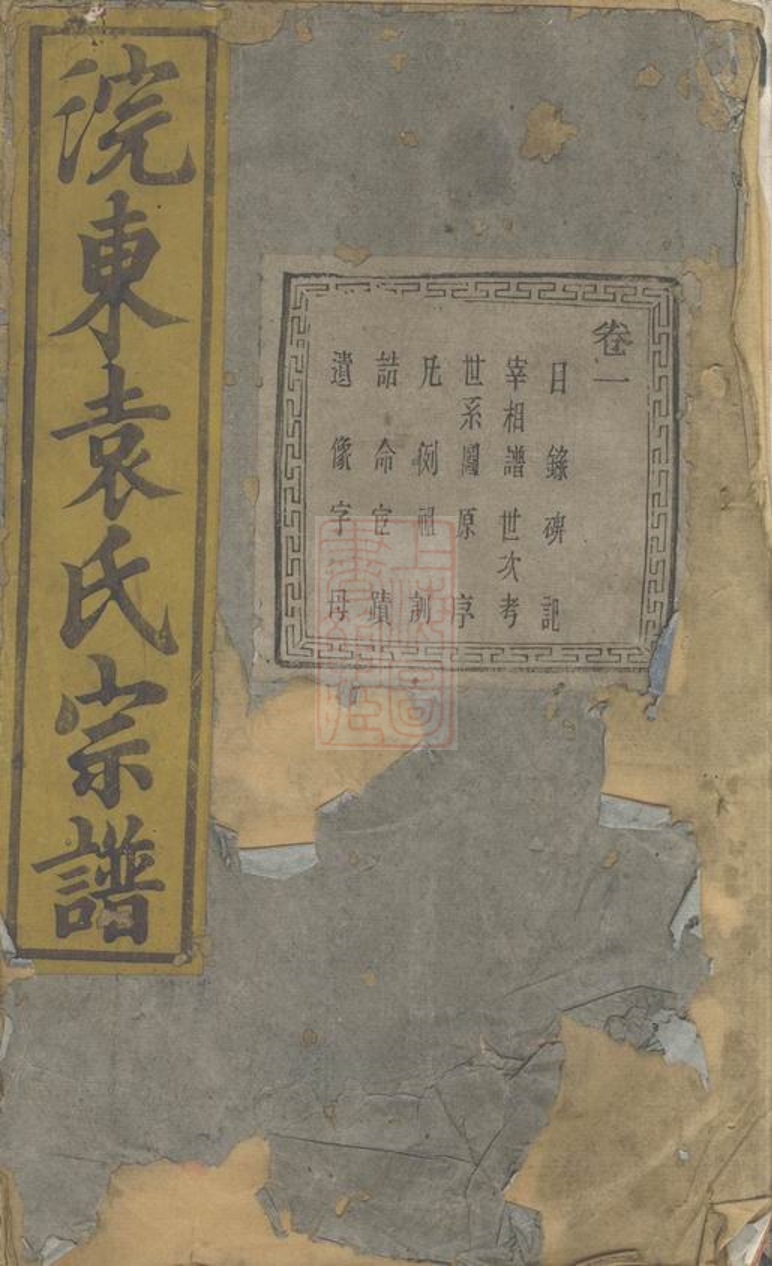 浣東袁氏宗譜
卷一
目錄 碑記
宰相譜 世次考
世系圖 原序
凡例 祖訓
誥命 宦蹟
遺像 字母